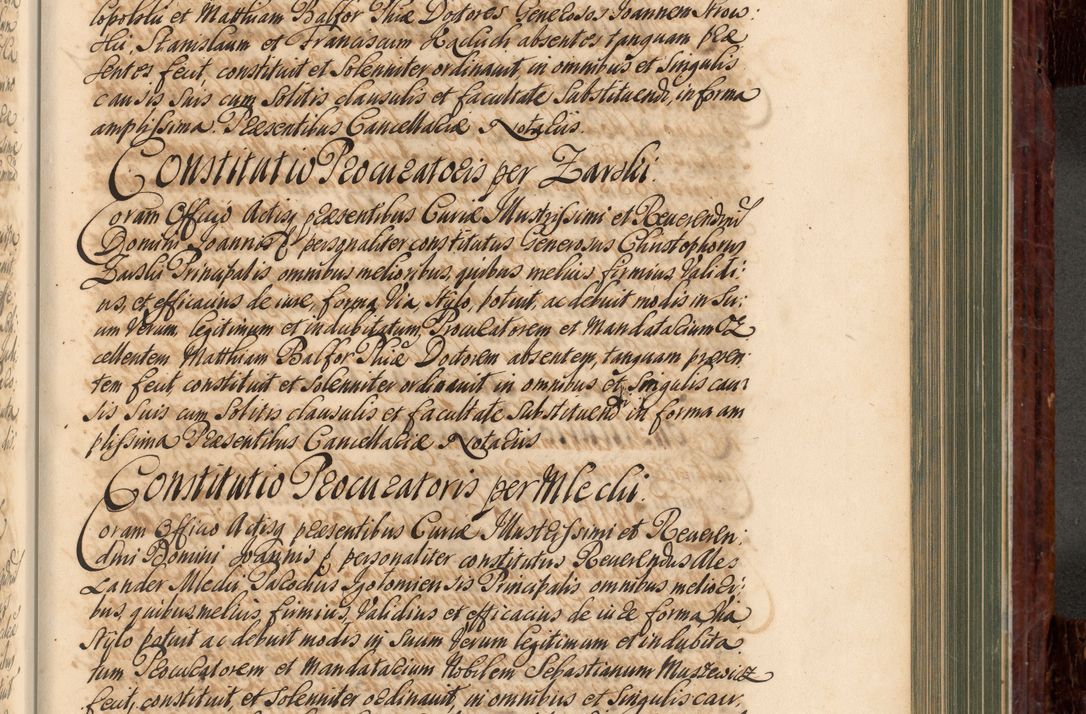 et Matthiam Balfor Phiae Doctores Generosos Joannem
Stanislaum et Franciscum Radlicki absentes tanquam præ
sentes fecit, constituit et solenniter ordinavit, in omnibus et singulis
causis suis cum solitis clausulis et facultate substituendi, in forma
amplissima. Præsentibus Cancellariæ Notariis.
Constitutio Procuratoris per Zarski
Coram Officio Actisq præsentibus Curiæ Illustrissimi et Reverendmi
Domini Joannis personaliter constitutus Generosus Christophorus
Zarski Principalis omnibus melioribus, quibus melius firmius, Validi:
us, et efficacius de iure, forma Via stylo, potuit, ac debuit modis in su:
um Verum legitimum et indubitatum Procuratorem et Mandatarium Ex
cellentem Matthiam Balfor Phiæ Doctorem absentem, tanquam præsen
tem fecit constituit et solenniter ordinavit in omnibus et singulis cau
sis suis cum solitis clausulis et facultate substituendi in forma am
plissima Præsentibus Cancellariæ Notariis
Constitutio Procuratoris per Mlecki
Coram Officio Actisq præsentibus Curiæ Illustrissimi et Reveren:
dmi Domini Joannis personaliter constitutus Reverendus Ale
xander Mlecki Parochus Igolomiensis Principalis omnibus meliori:
bus, quibus melius, firmius, Validius et efficacius de iure forma Via
stylo potuit ac debuit modis in suum Verum legitimum et indubita
tum Procuratorem et Mandatarium Nobilem Sebastianum
fecit, constituit, et solenniter ordinavit, in omnibus et singulis cau,